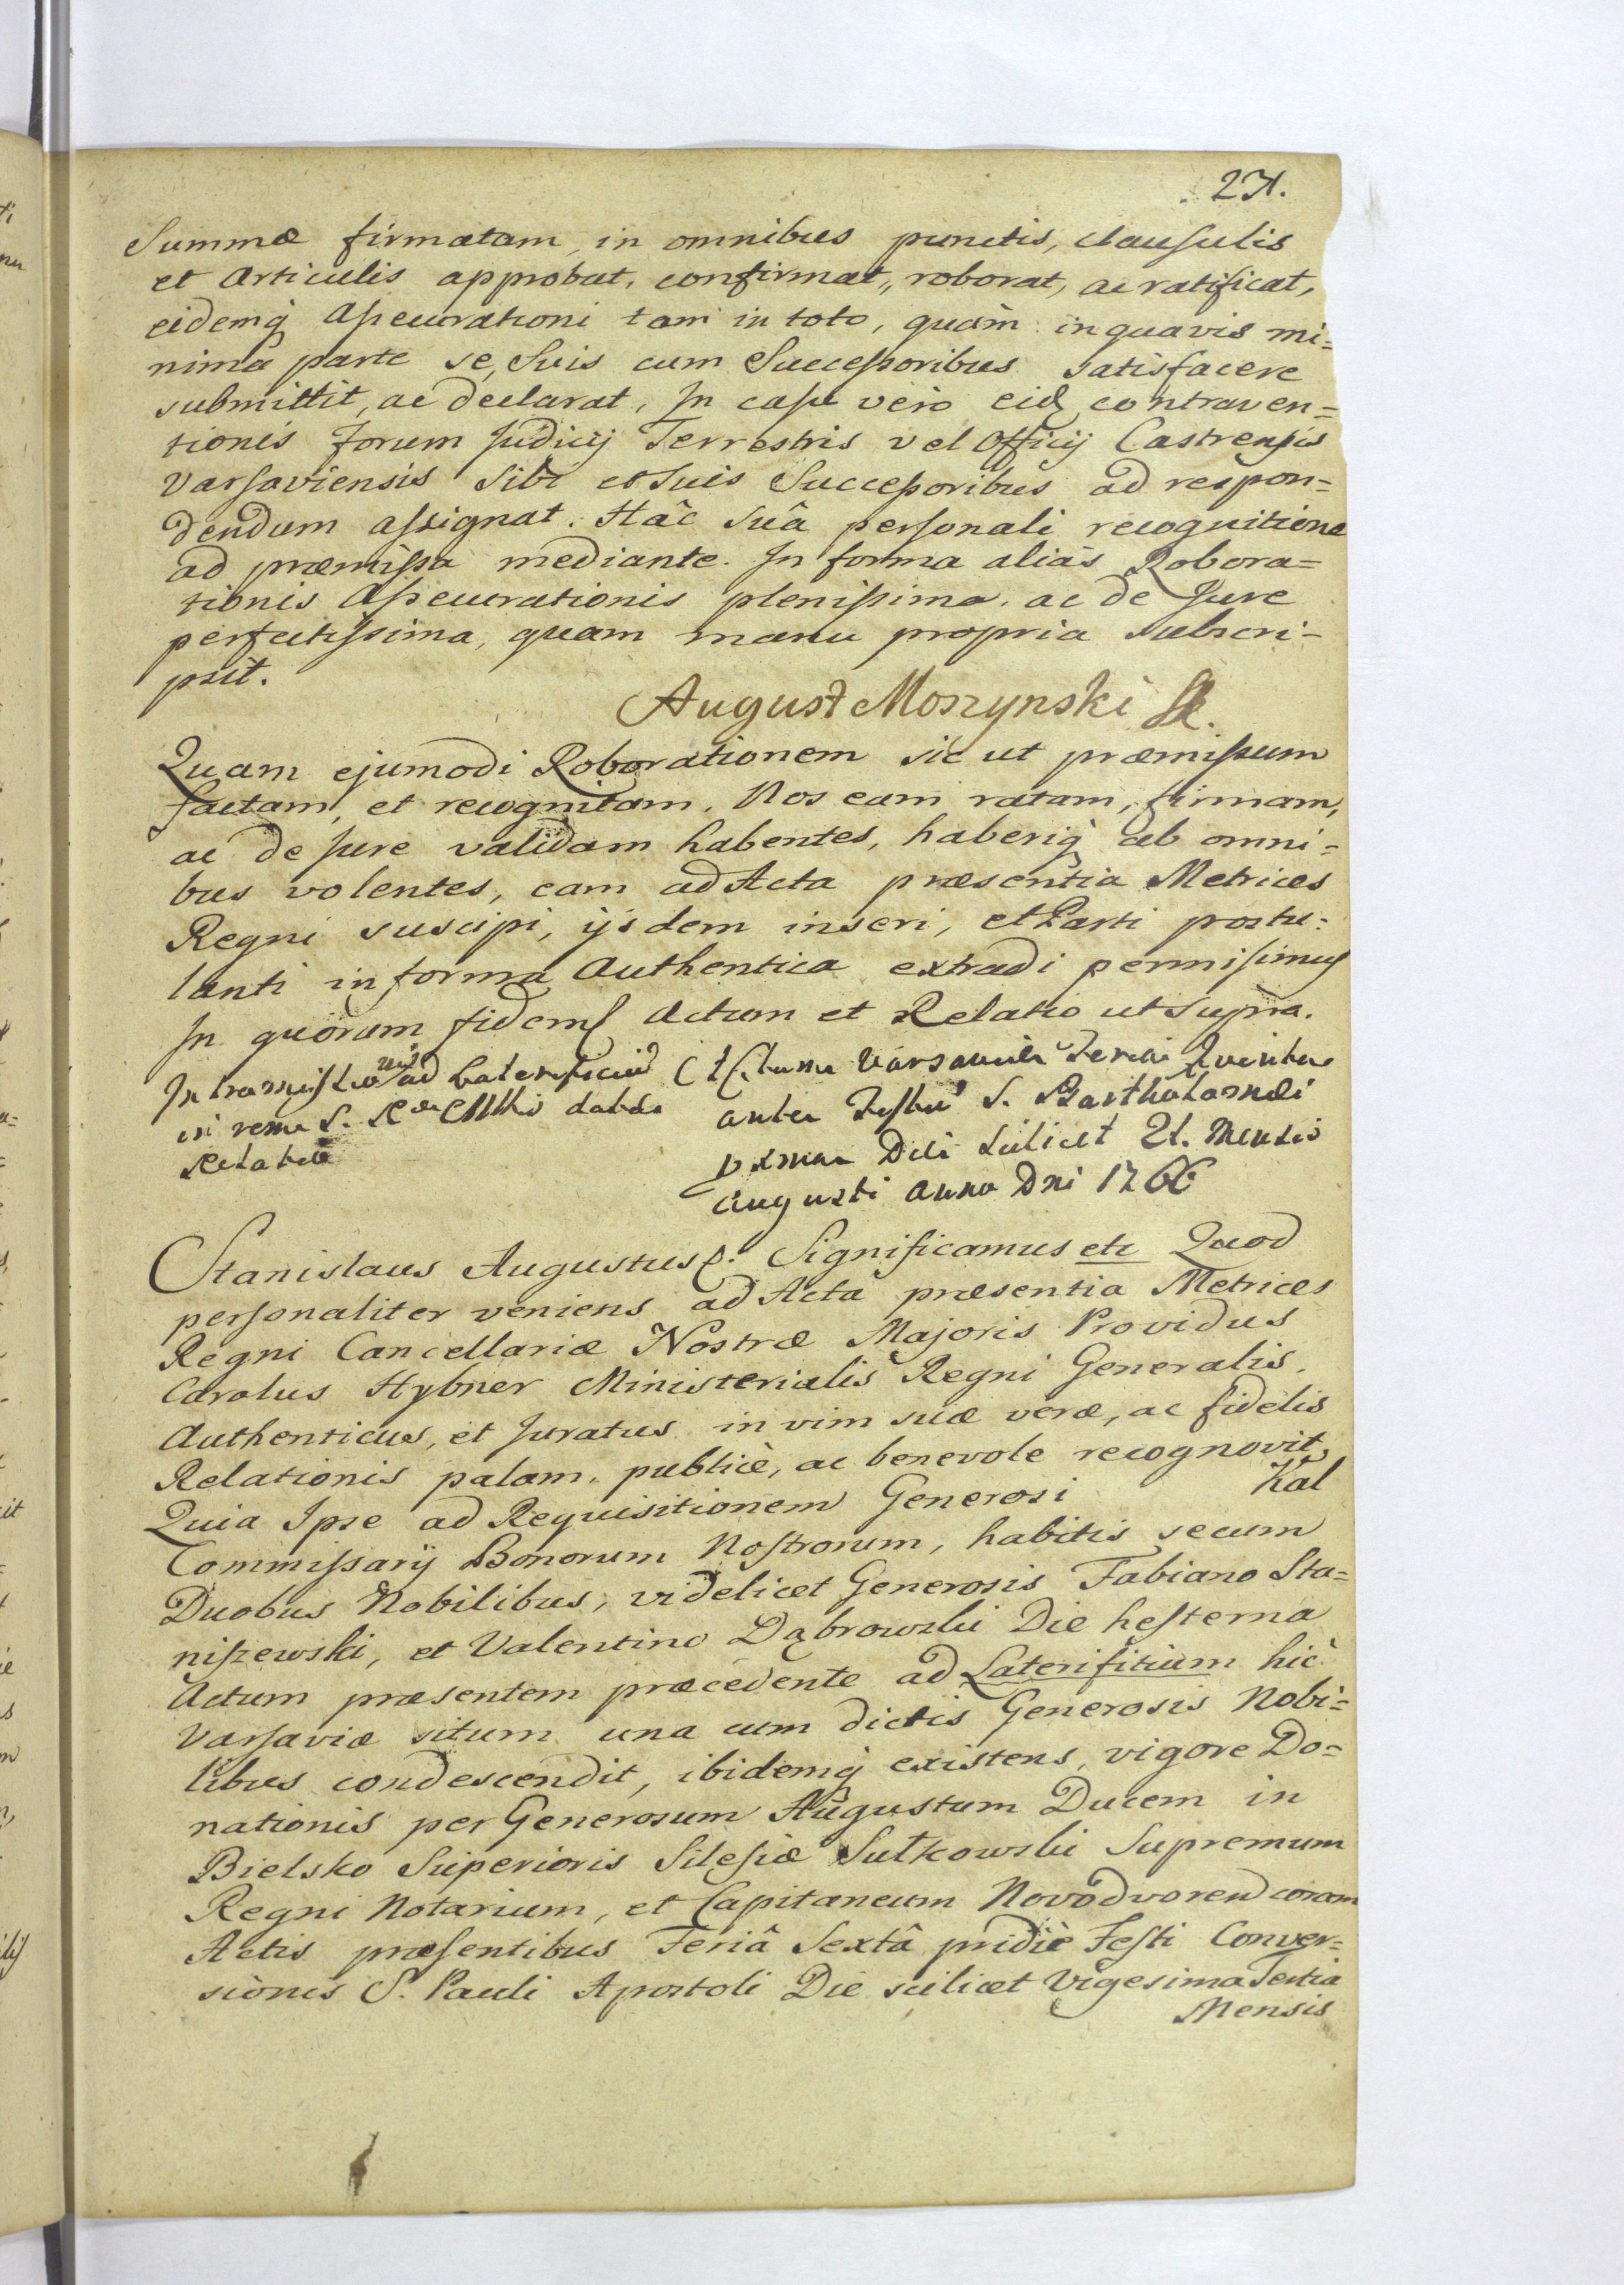 271.
Summæ firmatam, in omnibus punctis, clausulis
et Articulis approbat, confirmat, roborat, ac ratificat,
eidemq Assecurationi tam in toto, quàm in quavis mi=
nima parte se, Suis cum Successoribus satisfacere
submittit, ac declarat, In casu verò eid contraven=
tionis Forum Judicij Terrestris vel Officij Castrensis
Varsaviensis Sibi et Suis Successoribus ad respon=
dendum assignat. Hâc Suâ personali recognitione
ad præmissa mediante. In forma aliàs Robora=
tionis Assecurationis plenissima, ac de Jure
perfectissima, quam manu propria subscri=
psit.
August Moszynski
Quam ejumodi Roborationem sic ut præmissum
factam, et recognitam, Nos eam ratam, firmam,
ac de Jure validam habentes, haberiq ab omni=
bus volentes, eam ad Acta præsentia Metrices
Regni suscipi, ijsdem inseri, et Parti postu=
lanti in forma Authentica extradi permisimus
In quorum fidem Actum et Relatio ut supra.
ad Laterificiu
in rem S. R dat
Relatio
Actum Varsaviæ Feria Quinta
ante Festu S. Bartholomæi
Die scilicet 21. Mensis
Augusti Anno Dni 1766
Stanislaus Augustus Significamus etc Quod
personaliter veniens ad Acta præsentia Metrices
Regni Cancellariæ Nostræ Majoris Providus
Carolus Hybner Ministerialis Regni Generalis,
Authenticus, et Juratus in vim suæ veræ, ac fidelis
Relationis palam, publicè, ac benevole recognovit,
Quia Ipse ad Requisitionem Generosi Kal
Commissarij Bonorum Nostrorum, habitis secum
Duobus Nobilibus, videlicet Generosis Fabiano Sta=
niszewski, et Valentino Dąbrowski Die hesterna
Actum præsentem præcedente ad Laterifitium hic
Varsaviæ situm una cum dictis Generosis Nobi=
libus condescendit, ibidemq existens, vigore Do=
nationis per Generosum Augustum Ducem in
Bielsko Superioris Silesiæ Sułkowski Supremum
Regni Notarium, et Capitaneum Novodvoren coram
Actis præsentibus Feriâ Sextâ pridiè Festi Conver=
sionis S. Pauli Apostoli Die scilicet Vigesima Tertia
Mensis